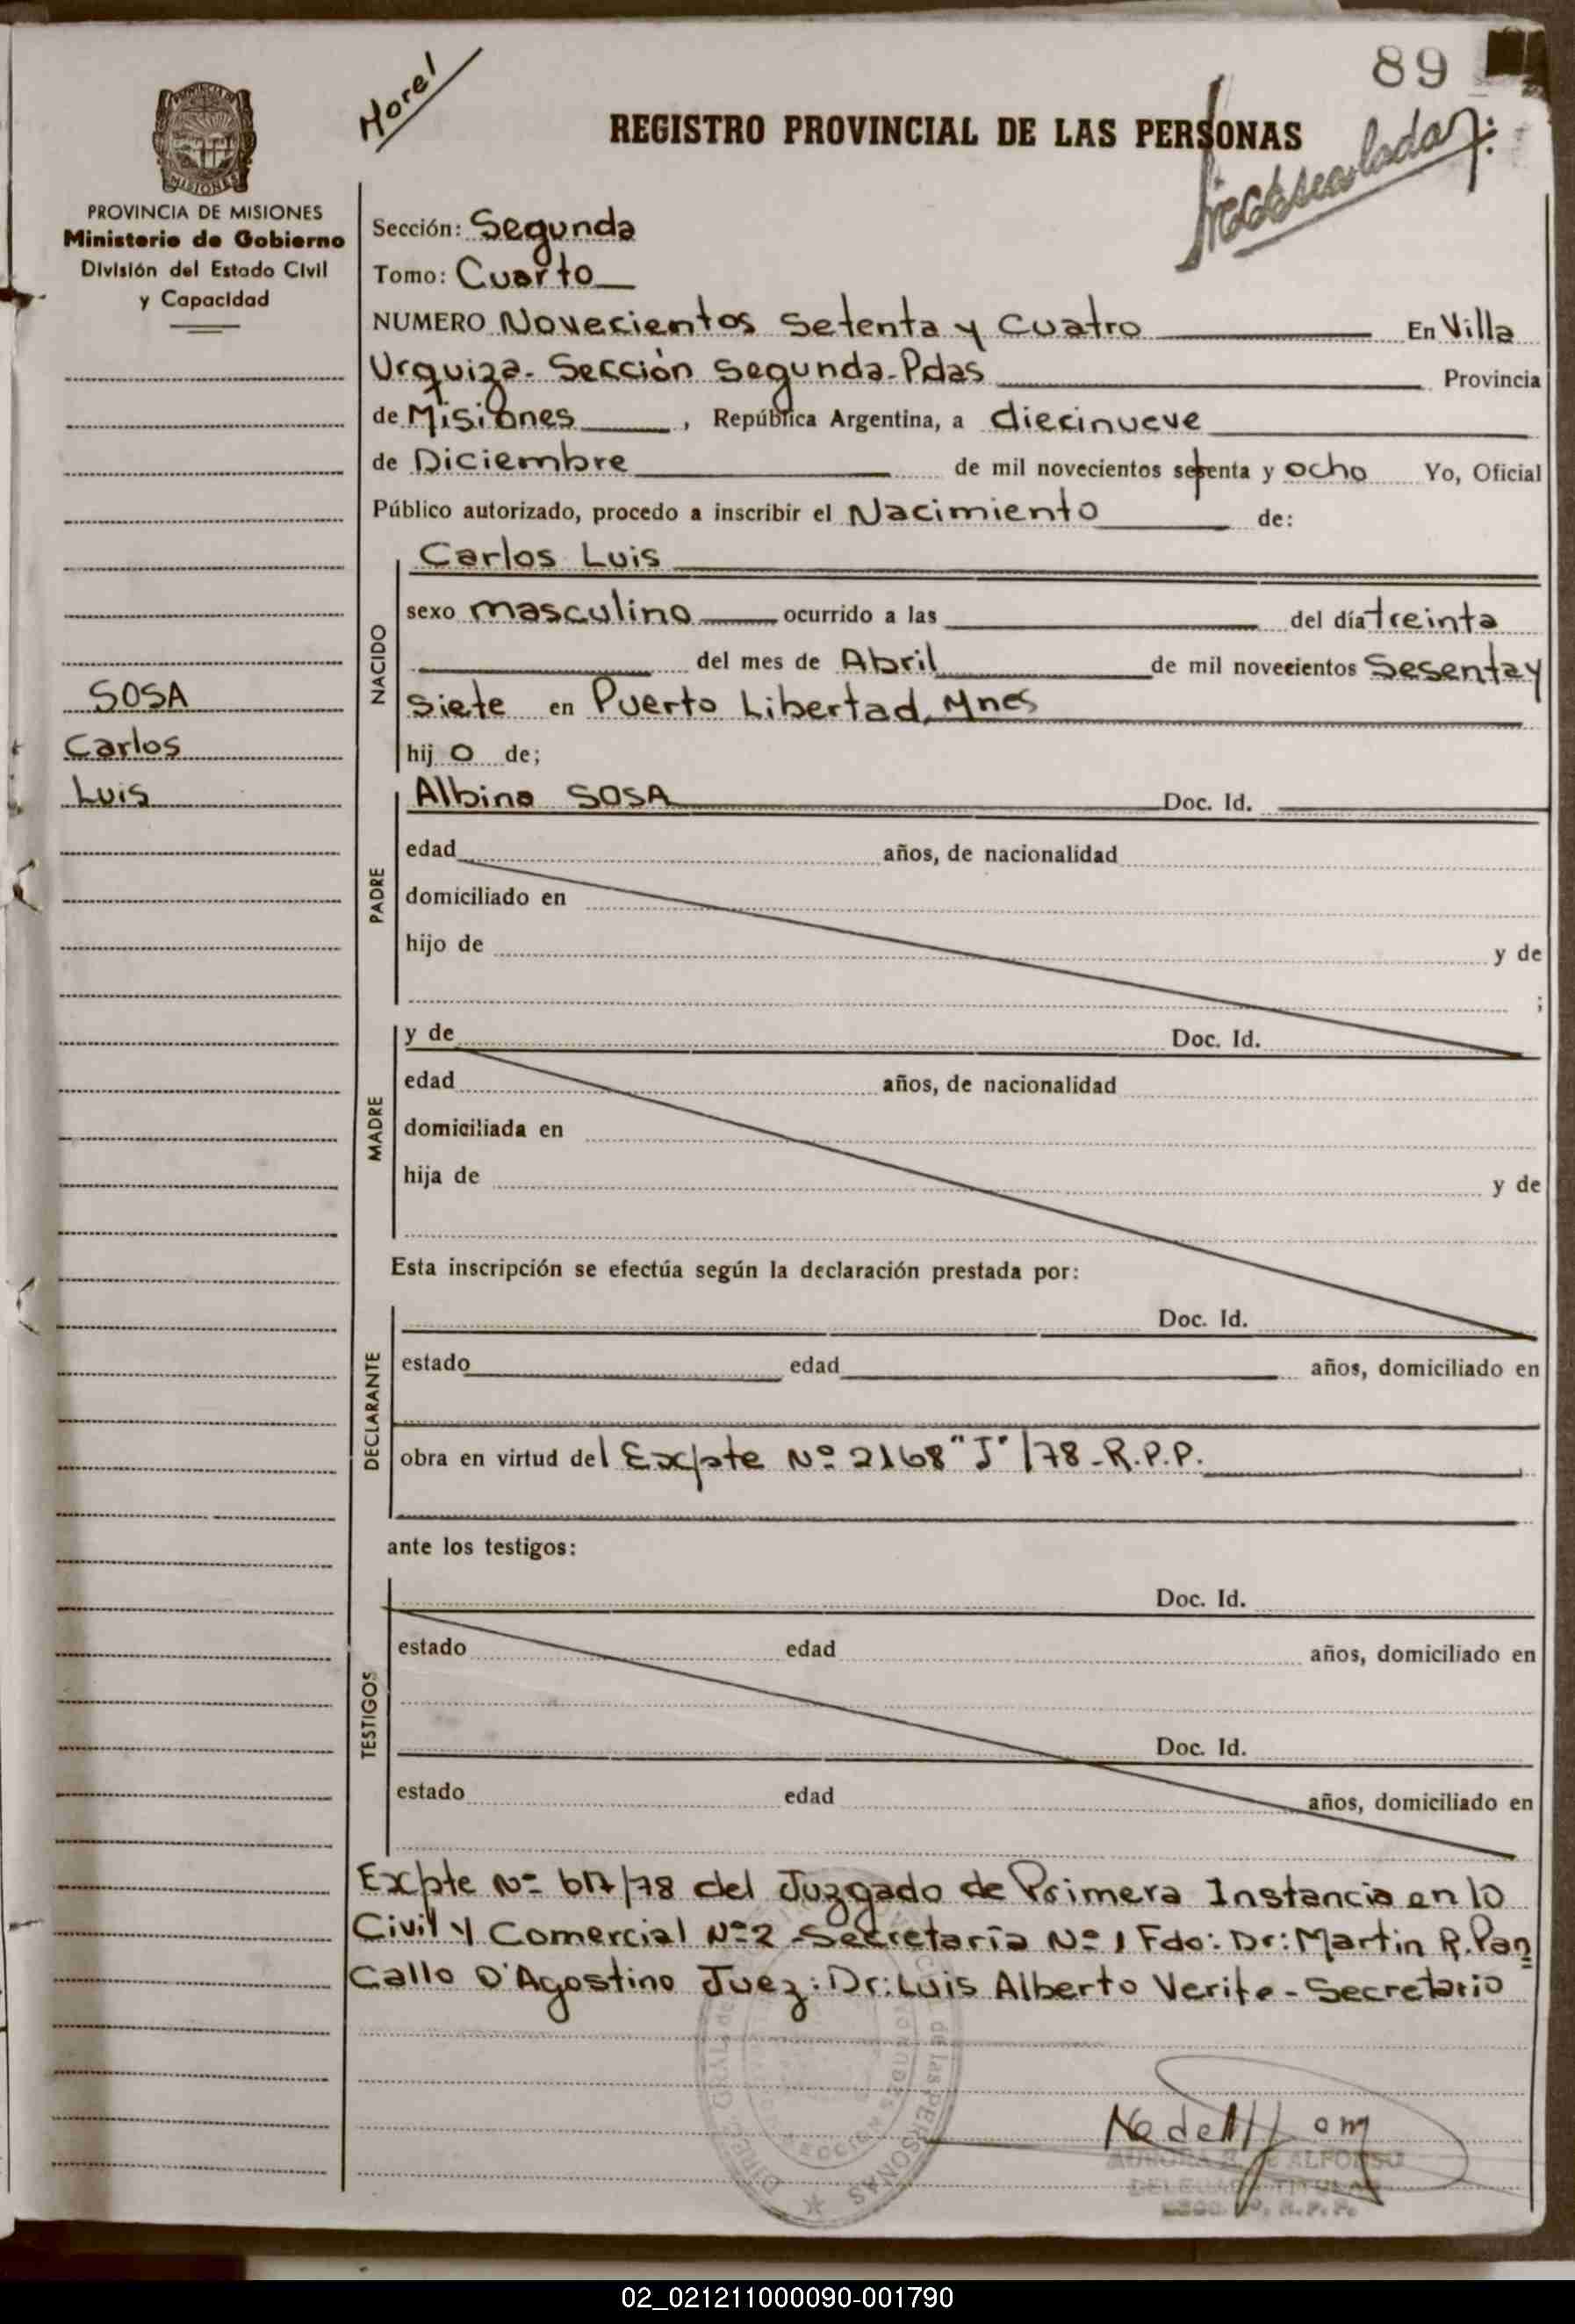 89
Morel
REGISTRO PROVINCIAL DE LAS PERSONAS
PROVINCIA DE MISIONES
Ministerio de Gobierno
División del Estado Civil
y Capacidad
Sección: Segunda
Tomo: Cuarto
NUMERO Novecientos Setenta y Cuatro En Villa
Urquiza - Sección Segunda - Pdas Provincia
de Misiones, República Argentina, a diecinueve
de Diciembre de mil novecientos setenta y ocho Yo, Oficial
Público autorizado, procedo a inscribir el Nacimiento de:
SOSA
Carlos
Luis
NACIDO
Carlos Luis
sexo masculino ocurrido a las del día treinta
del mes de Abril de mil novecientos Sesenta y
Siete en Puerto Libertad, Mnes
hij o de;
PADRE
Albino SOSA Doc. Id.
edad años, de nacionalidad
domiciliado en
hijo de y de
;
MADRE
y de Doc. Id.
edad años, de nacionalidad
domiciliada en
hija de y de
Esta inscripción se efectúa según la declaración prestada por:
DECLARANTE
Doc. Id.
estado edad años, domiciliado en
obra en virtud del Expte Nº 2168 "J" /78 - R.P.P.
ante los testigos:
TESTIGOS
Doc. Id.
estado edad años, domiciliado en
Doc. Id.
estado edad años, domiciliado en
Expte Nº 617/78 del Juzgado de Primera Instancia en lo
Civil y Comercial Nº 2 - Secretaría Nº 1 Fdo: Dr: Martin R. Pan
Callo D'Agostino Juez: Dr: Luis Alberto Verife - Secretario
DE ALFONSO
DELEGADA TITULAR
R. P. P.
02_021211000090-001790